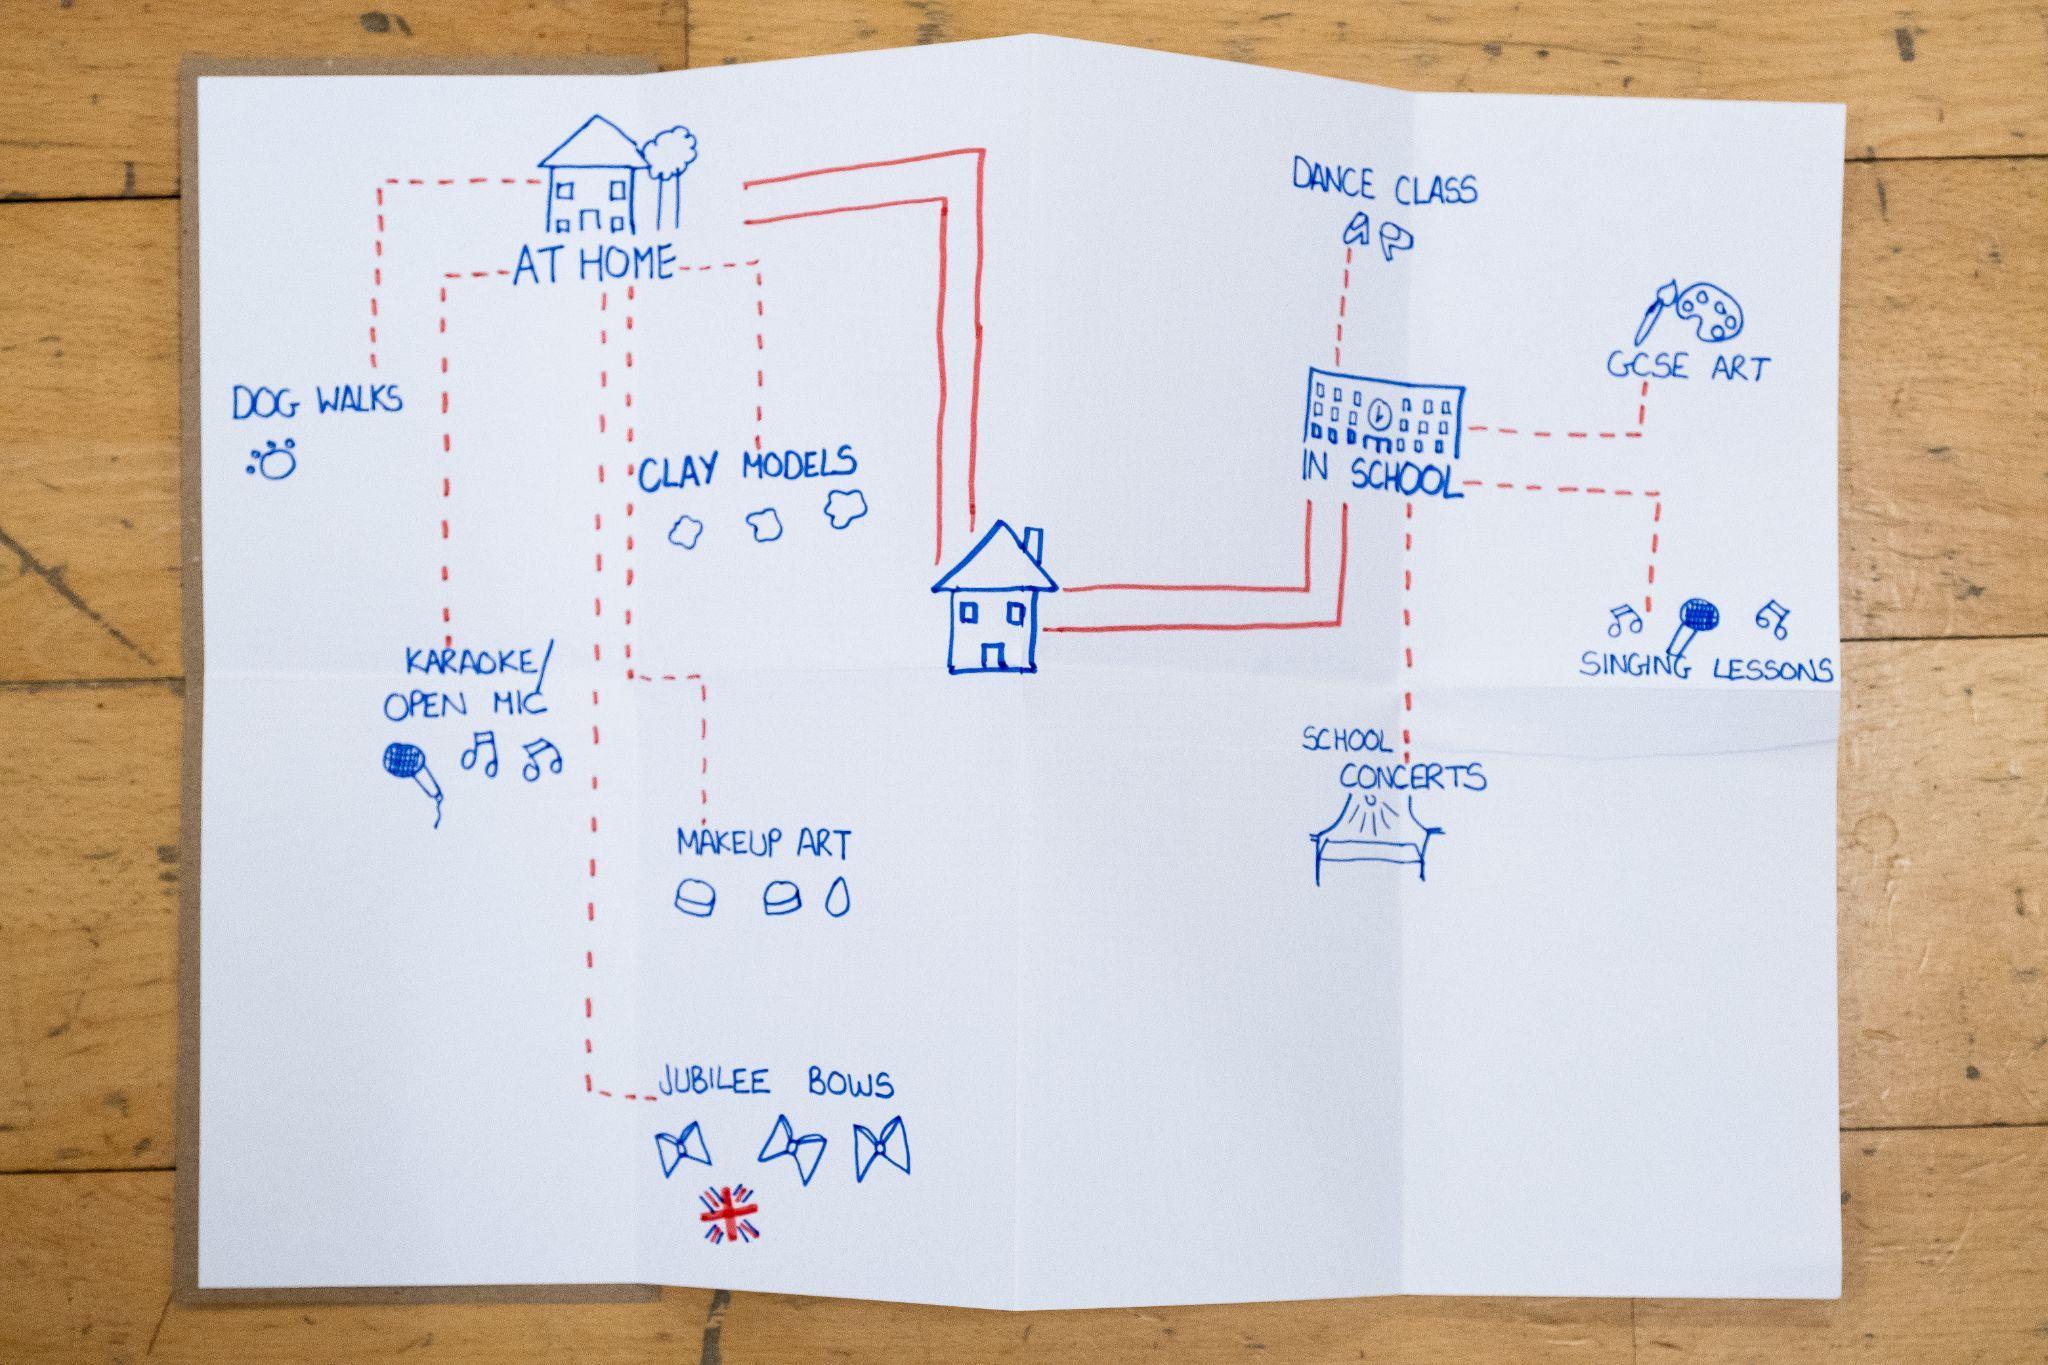 AT HOME
DOG WALKS
CLAY MODELS
KARAOKE/
OPEN MIC
MAKEUP ART
JUBILEE BOWS
DANCE CLASS
GCSE ART
IN SCHOOL
SINGING LESSONS
SCHOOL
CONCERTS